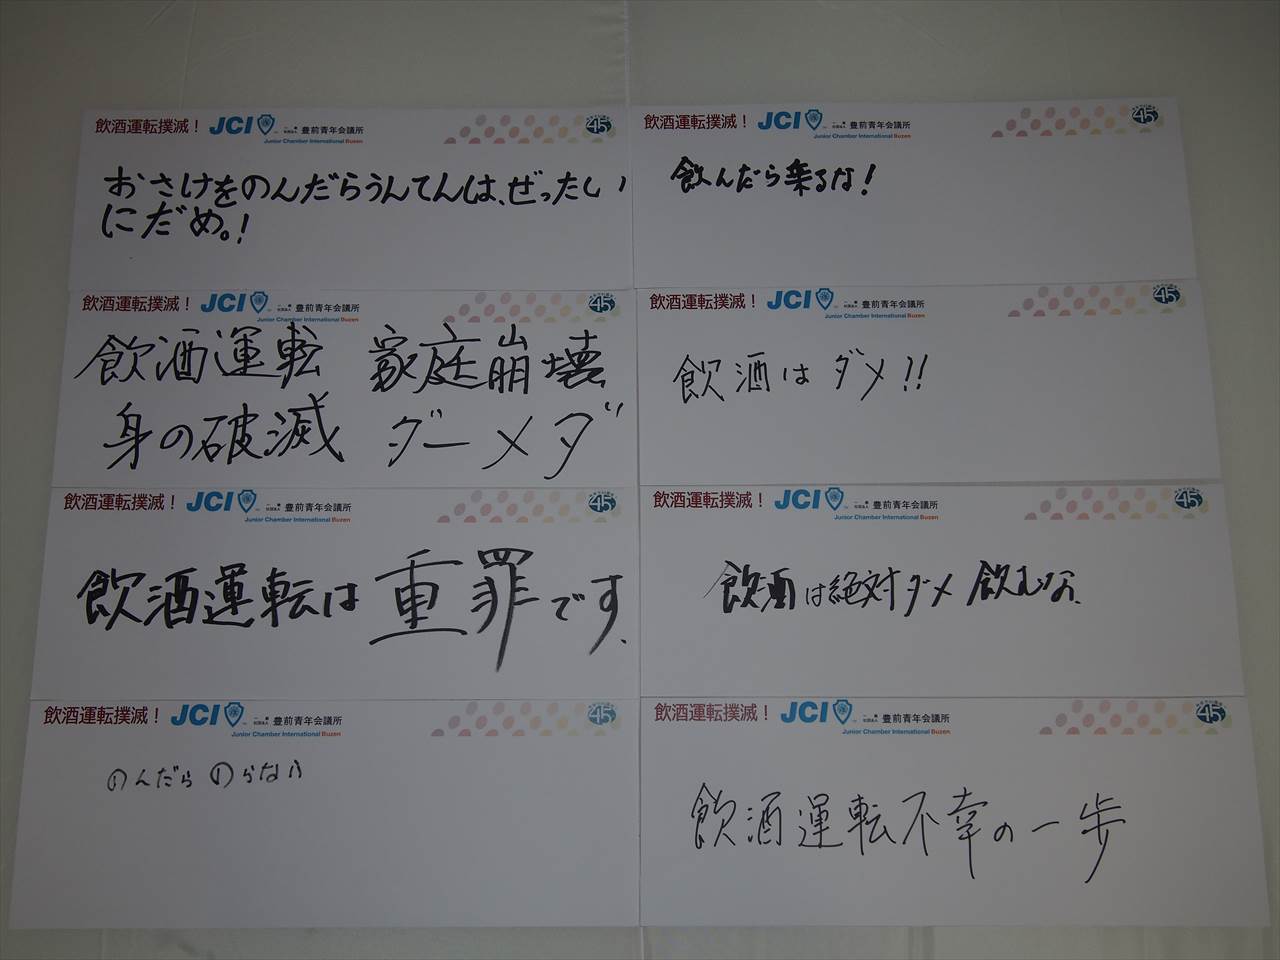 飲酒運転撲滅！ JCI 一般社団法人 豊前青年会議所 45
Junior Chamber International Buzen
おさけをのんだらうんてんは、ぜったい
にだめ。！
飲酒運転撲滅！ JCI 一般社団法人 豊前青年会議所 45
Junior Chamber International Buzen
飲んだら乗るな！
飲酒運転撲滅！ JCI 一般社団法人 豊前青年会議所 45
Junior Chamber International Buzen
飲酒運転 家庭崩壊
身の破滅 ダーメダ
飲酒運転撲滅！ JCI 一般社団法人 豊前青年会議所 45
Junior Chamber International Buzen
飲酒はダメ!!
飲酒運転撲滅！ JCI 一般社団法人 豊前青年会議所 45
Junior Chamber International Buzen
飲酒運転は重罪です、
飲酒運転撲滅！ JCI 一般社団法人 豊前青年会議所 45
Junior Chamber International Buzen
飲酒は絶対ダメ 飲むな、
飲酒運転撲滅！ JCI 一般社団法人 豊前青年会議所 45
Junior Chamber International Buzen
のんだら のらない
飲酒運転撲滅！ JCI 一般社団法人 豊前青年会議所 45
Junior Chamber International Buzen
飲酒運転不幸の一歩